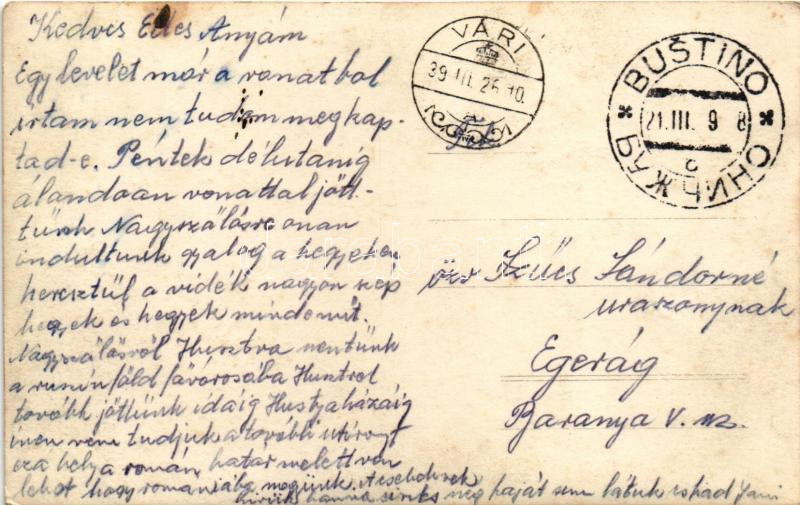 Kedves Édes Anyám
Egy levelet már a vonatbol
irtam nem tudom megkap-
tad-e. Péntek délutanig
álandoan vonattal jött-
tünk Nagyszőlősre onan
indultunk gyalog a hegyeken
keresztül a vidék nagyon szep
hegyek és hegyek mindenüt.
Nagyszőlősről Husztra mentünk
a ruszin föld fővárosába Husztrol
tovább jöttünk idáig Hustyaházáig
inen nem tudjuk a további utirányt
eza hely a román hatar melett van
lehet hogy romaniába megyünk. A cseheknek
hirük hamva sincs még haját sem látuk
VÁRI
39 III. 26 10
BUŠTINO
21. III. 9 8
БУЖЧИНО
özv Szűcs Sándorné
uraszonynak
Egerág
Baranya v. m.